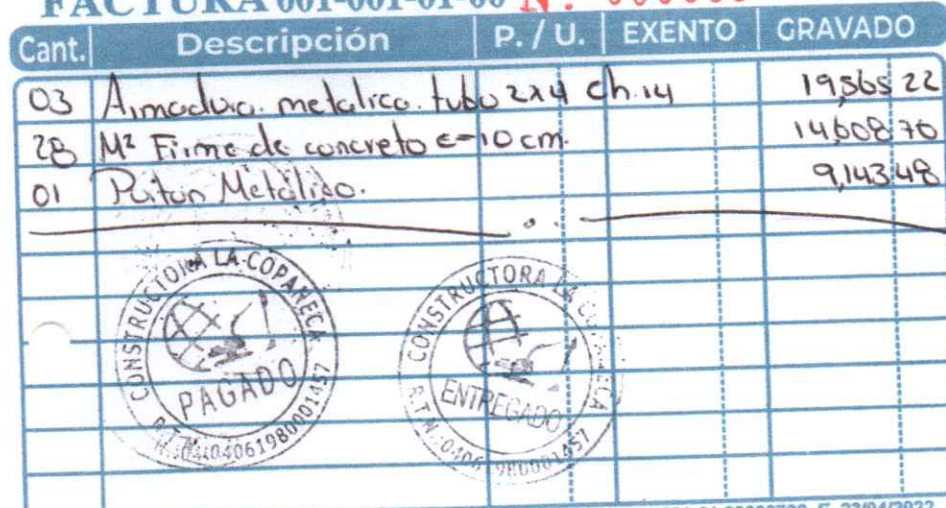 FACTURA 001-001-01-00 Nº.
Cant. Descripción P. / U. EXENTO GRAVADO
03 Armadura metalica tubo 2x4 ch.14 19,565 22
28 M² Firme de concreto e=10 cm. 14,608 70
01 Porton Metálico. 9,143 48
CONSTRUCTORA LA COPANECA
PAGADO
R.T.N. 04061980001457
CONSTRUCTORA LA COPANECA
ENTREGADO
R.T.N. 04061980001457
23/04/2022